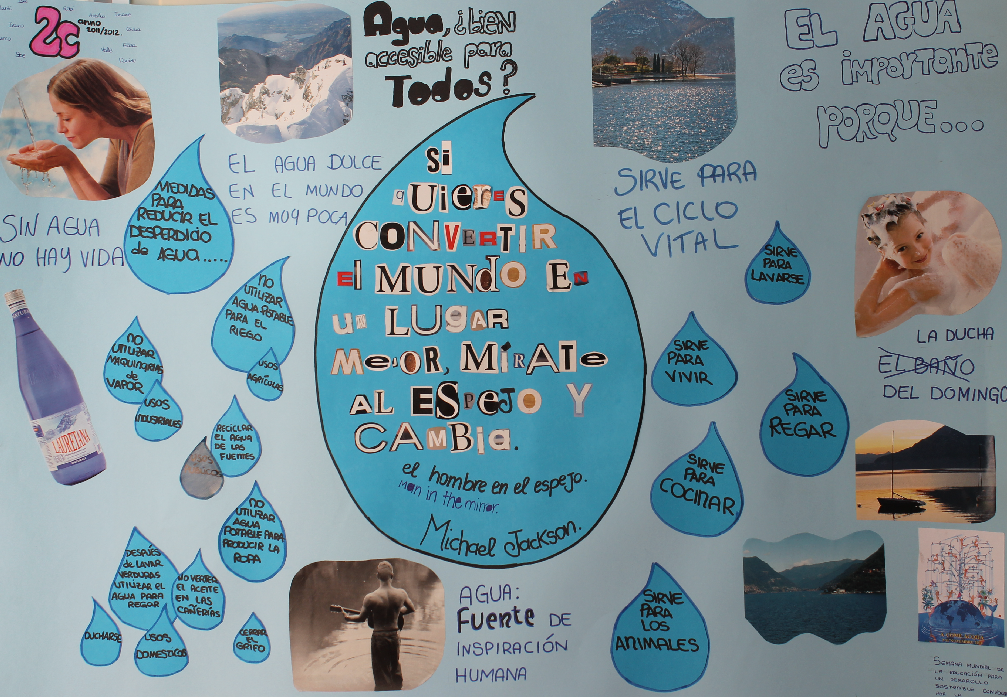 2c
anno
2011/2012
Agua, ¿bien
accesible para
Todos?
EL AGUA
es importante
PORQUE...
EL AGUA DULCE
EN EL MUNDO
ES MUY POCA
SIN AGUA
NO HAY VIDA
MEDIDAS
PARA
REDUCIR EL
DESPERDICIO
de AGUA.....
NO
UTILIZAR
AGUA POTABLE
PARA EL
RIEGO
USOS
AGRÍCOLAS
NO
UTILIZAR
MAQUINARIAS
de
VAPOR
USOS
INDUSTRIALES
RECICLAR
EL AGUA
DE LAS
FUENTES
NO
UTILIZAR
AGUA
POTABLE PARA
PRODUCIR LA
ROPA
DESPUÉS
de LAVAR
VERDURAS
UTILIZAR EL
AGUA PARA
REGAR
NO VERTER
EL ACEITE
EN LAS
CAÑERÍAS
DUCHARSE
USOS
DOMESTICOS
CERRAR
EL
GRIFO
LAURETANA
Si
QUIERES
CONVERTIR
El MUNDO EN
un LUGAR
MEJOR, MÍRATE
AL ESPEJO Y
CAMBIA.
el hombre en el espejo.
Man in the mirror.
Michael Jackson.
AGUA:
Fuente DE
INSPIRACIÓN
HUMANA
SIRVE PARA
EL CICLO
VITAL
SIRVE
PARA
LAVARSE
SIRVE
PARA
VIVIR
SIRVE
PARA
REGAR
SIRVE
PARA
COCINAR
SIRVE
PARA
LOS
ANIMALES
LA DUCHA
EL BAÑO
DEL DOMINGO
SEMANA MUNDIAL DE
LA EDUCACIÓN PARA
UN DESARROLLO